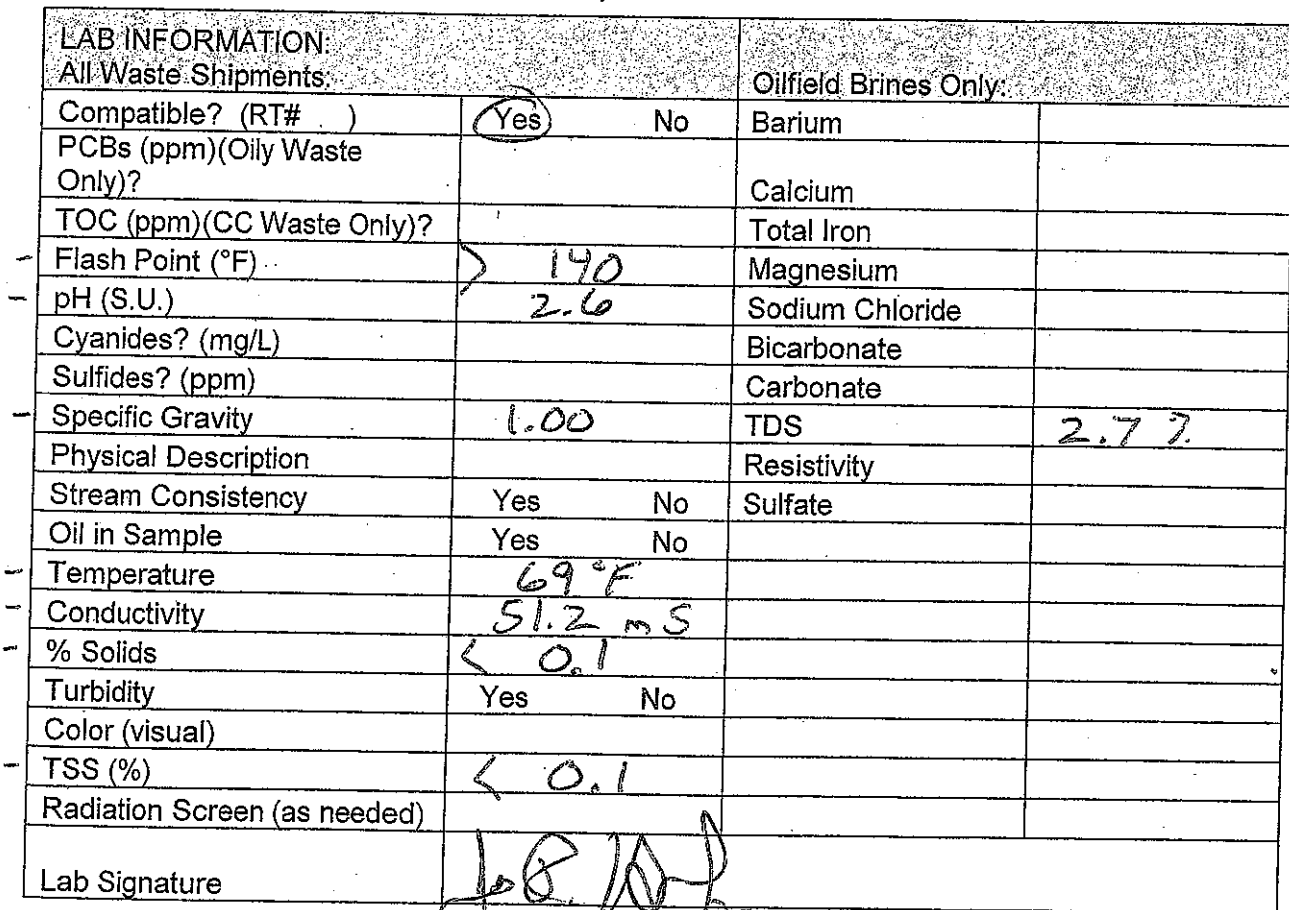 LAB INFORMATION:
All Waste Shipments:
Oilfield Brines Only:
Compatible? (RT# ) Yes No Barium
PCBs (ppm)(Oily Waste
Only)? Calcium
TOC (ppm)(CC Waste Only)? Total Iron
- Flash Point (°F) > 140 Magnesium
- pH (S.U.) 2.6 Sodium Chloride
Cyanides? (mg/L) Bicarbonate
Sulfides? (ppm) Carbonate
- Specific Gravity 1.00 TDS 2.7 %
Physical Description Resistivity
Stream Consistency Yes No Sulfate
Oil in Sample Yes No
- Temperature 69 °F
- Conductivity 51.2 mS
- % Solids < 0.1
Turbidity Yes No
Color (visual)
- TSS (%) < 0.1
Radiation Screen (as needed)
Lab Signature